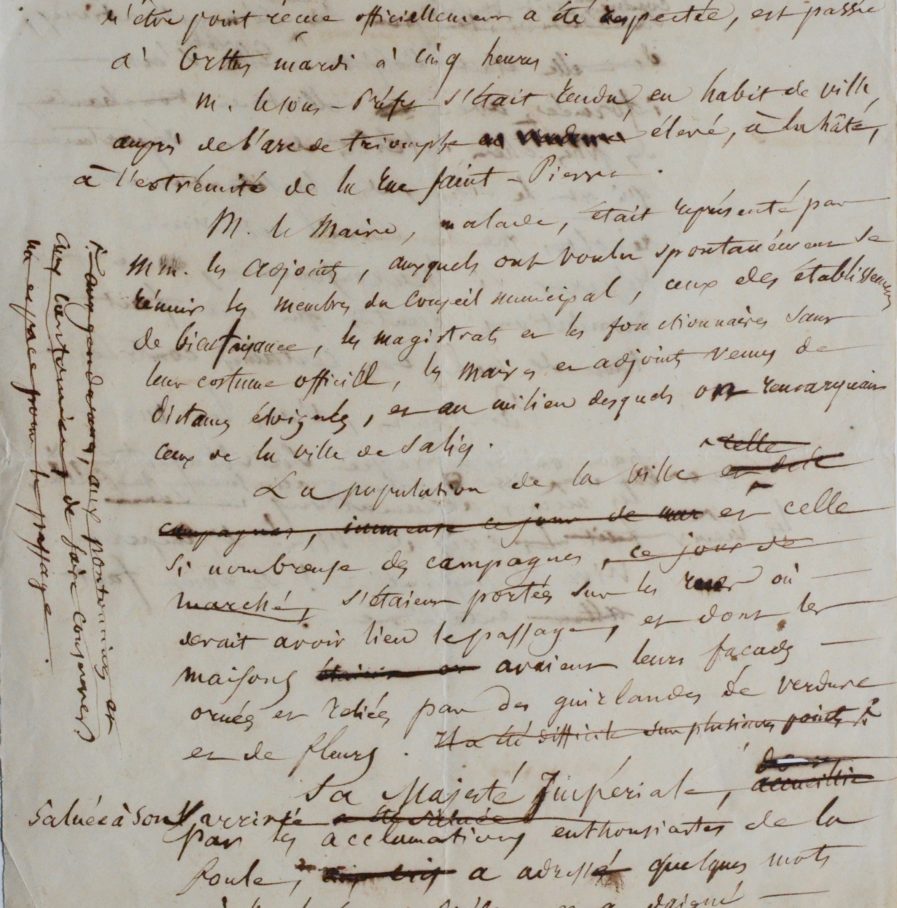 n'être point reçue officiellement a été respectée, est passée
à Orthez mardi à cinq heures
M. le sous-Préfet s'était rendu, en habit de ville,
auprès de l'arc de triomphe élevé, à la hâte,
à l'extrémité de la rue Saint-Pierre.
M. le Maire, malade, était représenté par
MM. les adjoints, auxquels ont voulu spontanément se
réunir les membres du Conseil municipal, ceux des établissemens
de bienfaisance, les magistrats et les fonctionnaires dans
leur costume officiel, les maires et adjoints venus de
distances éloignées, et au milieu desquels on remarquait
ceux de la ville de Salies.
celle
La population de la ville et de la
campagnes, immense ce jour de et celle
si nombreuse des campagnes, ce jour de
marché, s'étaient portées sur les rues où
devait avoir lieu le passage, et dont les
maisons étaient avaient leurs façades
ornées et reliées par des guirlandes de verdure
et de fleurs. Il a été difficile sur plusieurs points
aux gendarmes, aux pontonniers et
aux cantonniers de faire conserver
un espace pour le passage.
Sa Majesté Impériale, accueillie
Saluée à son arrivée a été saluée
par les acclamations enthousiastes de la
foule, a adressé quelques mots
a daigné